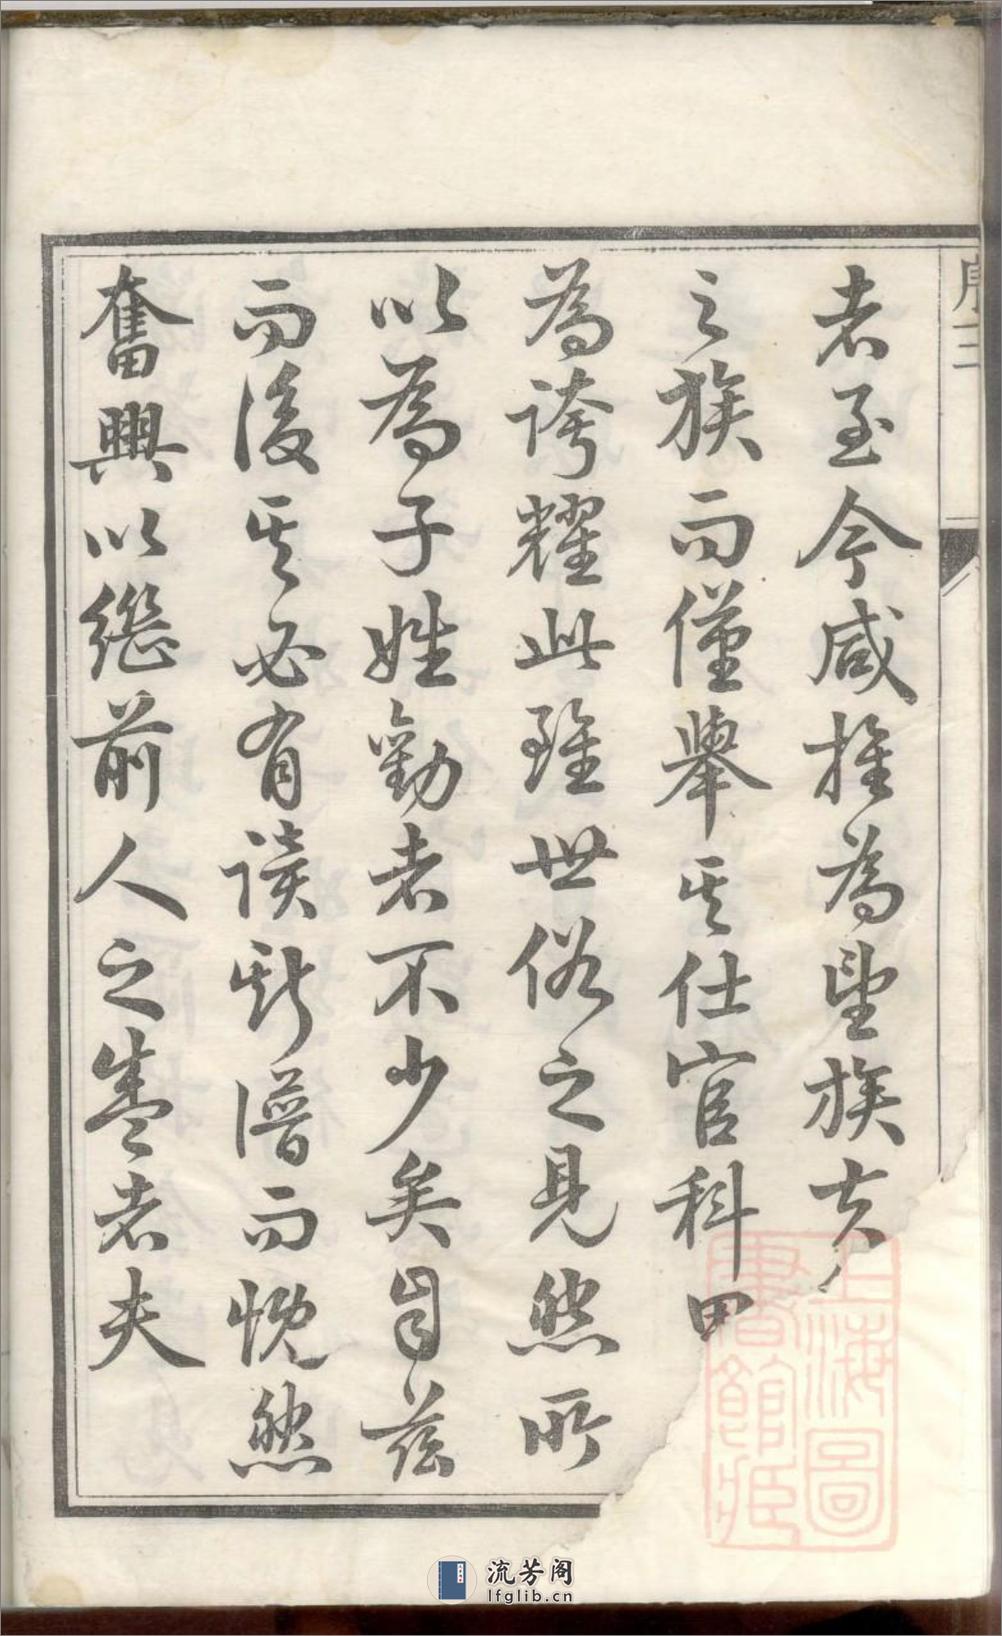 序三
者至今咸推為望族
之族而僅舉其仕官科甲
為誇耀此雖世俗之見然所
以為子姓勸者不少矣自茲
而後其必有讀斯譜而恍然
奮興以繼前人之盛者夫
上海圖
書館藏
流芳阁
lfglib.cn